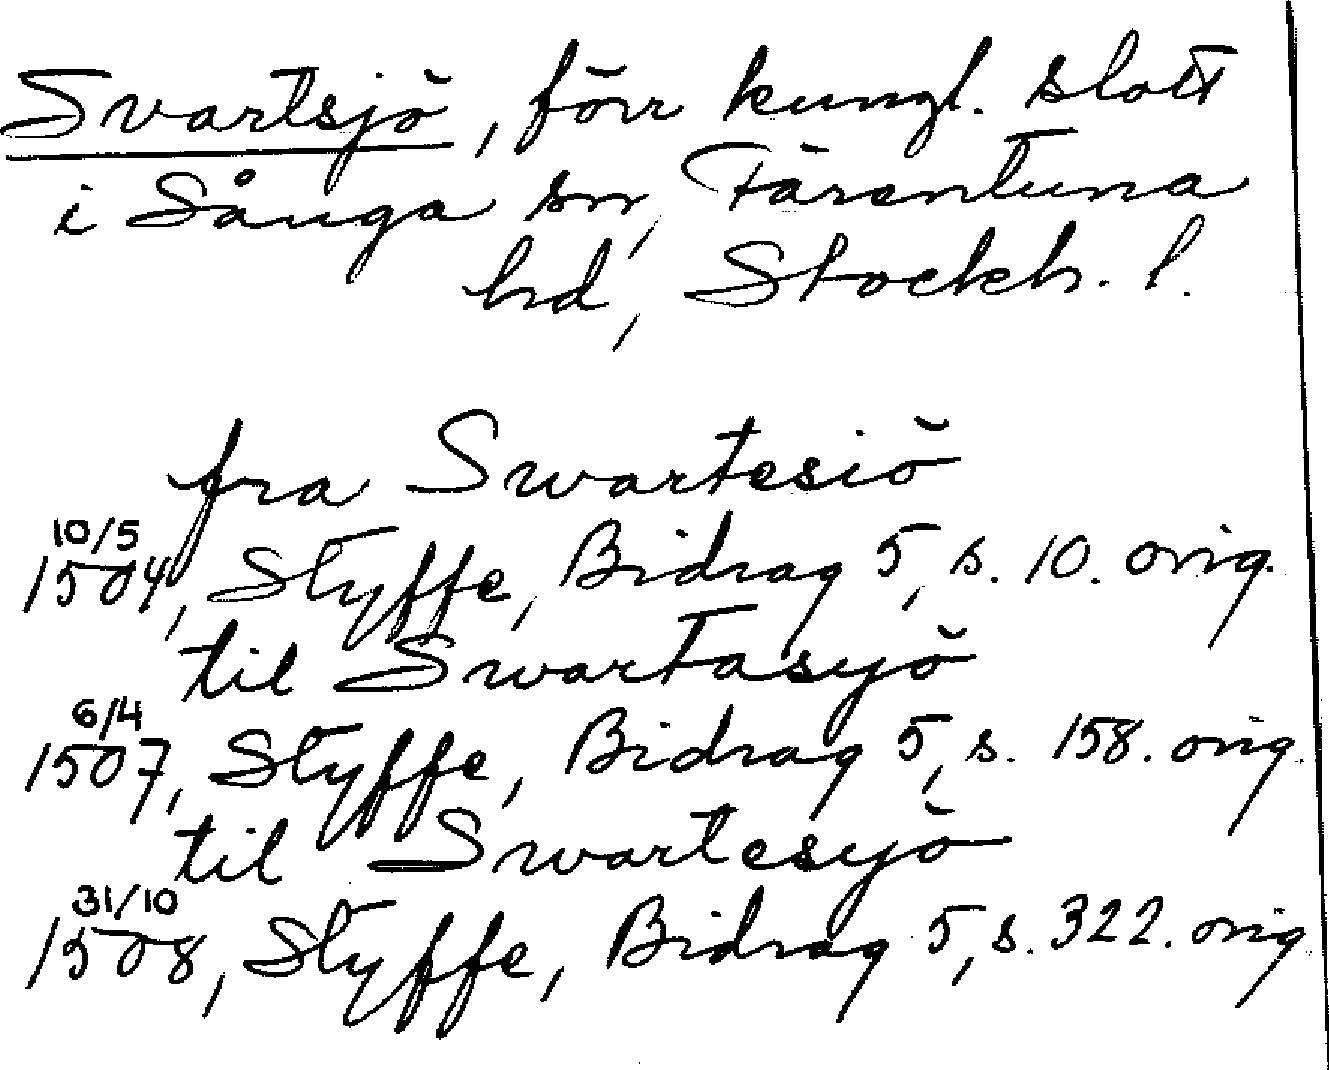 Svartsjö, förr kungl. slott
i Sånga sn, Färentuna
hd, Stockh. l.
fra Swartesiö
10/5
1504, Styffe, Bidrag 5, s. 10. orig.
til Swartasyö
6/4
1507, Styffe, Bidrag 5, s. 158. orig.
til Swartesyö
31/10
1508, Styffe, Bidrag 5, s. 322. orig